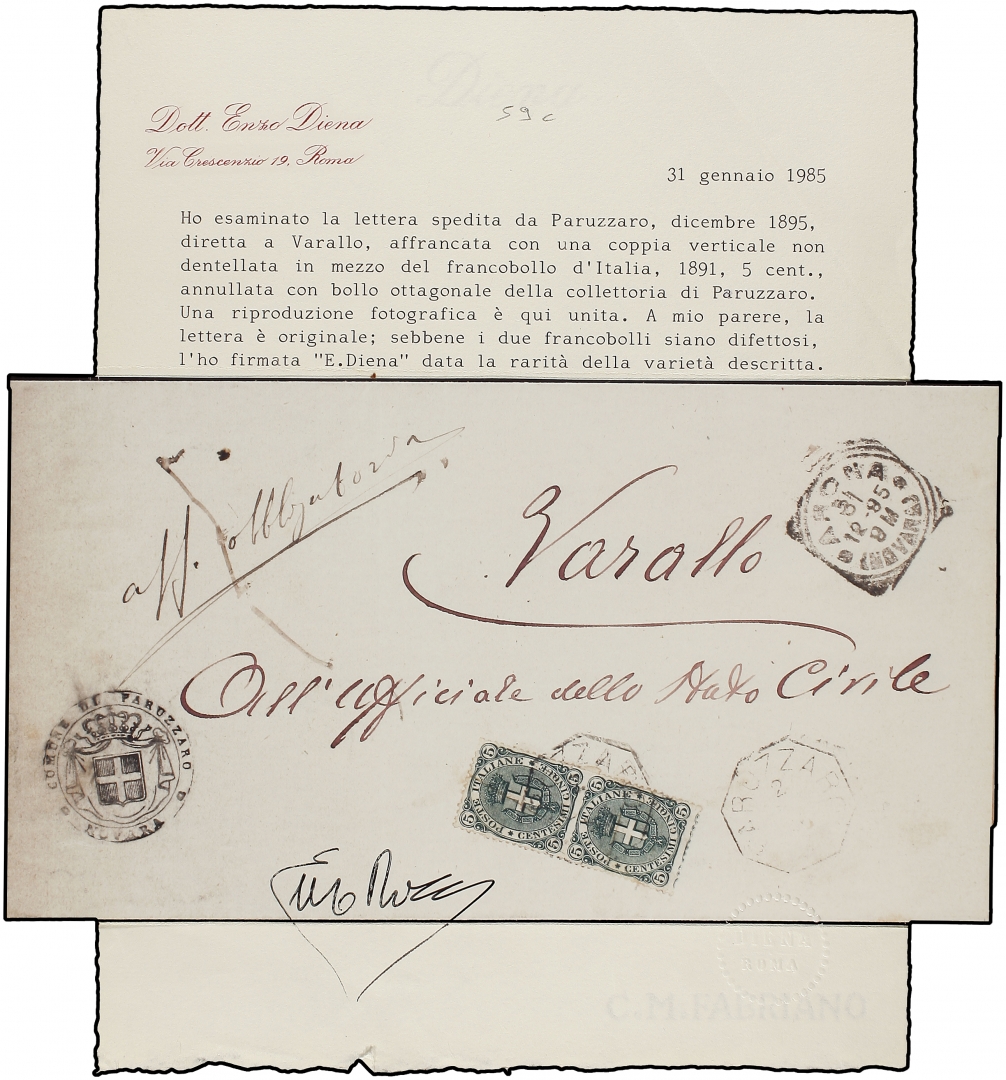 Diena
59c
Dott. Enzo Diena
Via Crescenzio 19, Roma
31 gennaio 1985
Ho esaminato la lettera spedita da Paruzzaro, dicembre 1895,
diretta a Varallo, affrancata con una coppia verticale non
dentellata in mezzo del francobollo d'Italia, 1891, 5 cent.,
annullata con bollo ottagonale della collettoria di Paruzzaro.
Una riproduzione fotografica è qui unita. A mio parere, la
lettera è originale; sebbene i due francobolli siano difettosi,
l'ho firmata "E.Diena" data la rarità della varietà descritta.
ARONA
(NOVARA)
31
12-95
9M
Varallo
All'Ufficiale dello Stato Civile
COMUNE DI PARUZZARO
NOVARA
POSTE ITALIANE
CENTESIMI CINQUE
5 5 5 5
POSTE ITALIANE
CENTESIMI CINQUE
5 5 5 5
DIENA
ROMA
C.M.FABRIANO